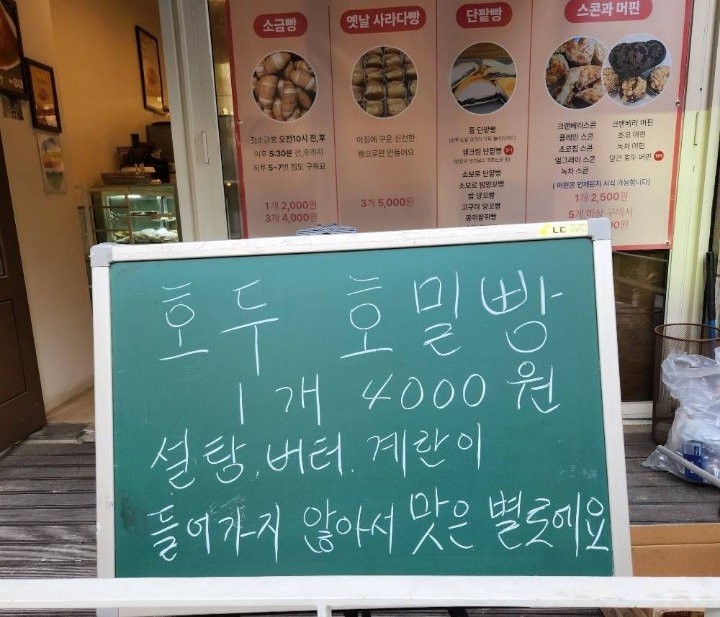 소금빵
첫소금빵 오전10시 전,후
이후 5:30분 전,후까지
하루 5~7번 정도 구워요
1개 2,000원
3개 4,000원
옛날 사라다빵
아침에 구운 신선한
빵으로만 만들어요
3개 5,000원
단팥빵
통 단팥빵
생크림 단팥빵
소보로 단팥빵
소보로 밤앙꼬빵
쌀 앙꼬빵
고구마 앙꼬빵
스콘과 머핀
크랜베리스콘
플레인 스콘
초코칩 스콘
얼그레이 스콘
녹차 스콘
크랜베리 머핀
초코 머핀
녹차 머핀
당근 호두 머핀
( 머핀은 언제든지 시식 가능합니다)
1개 2,500원
5개 이상 구매시
LC
호두 호밀빵
1개 4000원
설탕, 버터. 계란이
들어가지 않아서 맛은 별로에요